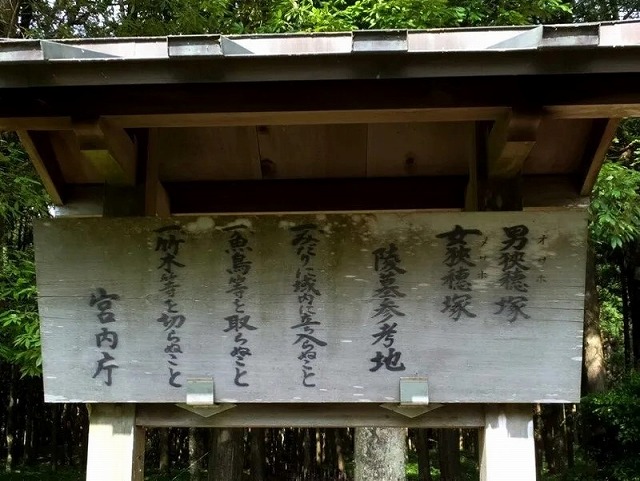 男狭穂塚
オサホ
女狭穂塚
メサホ
陵墓参考地
一みだりに域内に立ち入らぬこと
一魚鳥等を取らぬこと
一竹木等を切らぬこと
宮内庁